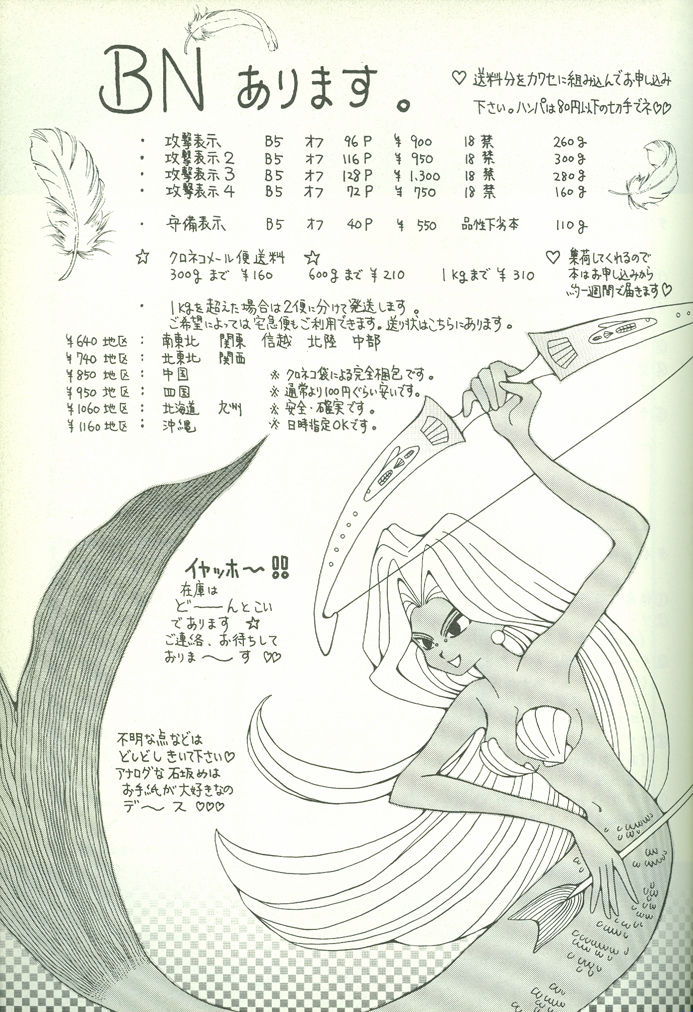 BN あります。
♡ 送料分をカワセに組み込んでお申し込み
下さい。ハンパは80円以下の切手でネ♡♡
・ 攻撃表示 B5 オフ 96P ¥900 18禁 260g
・ 攻撃表示2 B5 オフ 116P ¥950 18禁 300g
・ 攻撃表示3 B5 オフ 128P ¥1.300 18禁 280g
・ 攻撃表示4 B5 オフ 72P ¥750 18禁 160g
・ 守備表示 B5 オフ 40P ¥550 品性下劣本 110g
☆ クロネコメール便送料 ☆
300gまで ¥160 600gまで ¥210 1kgまで ¥310
♡ 集荷してくれるので
本はお申し込みから
約一週間で届きます♡
・ 1kgを超えた場合は2便に分けて発送します。
ご希望によっては宅急便もご利用できます。送り状はこちらにあります。
¥640 地区 : 南東北 関東 信越 北陸 中部
¥740 地区 : 北東北 関西
¥850 地区 : 中国 ※ クロネコ袋による完全梱包です。
¥950 地区 : 四国 ※ 通常より100円ぐらい安いです。
¥1060 地区 : 北海道 九州 ※ 安全・確実です。
¥1160 地区 : 沖縄 ※ 日時指定OKです。
イヤッホ〜!!
在庫は
ど――んとこい
であります ☆
ご連絡、お待ちして
おりま〜す ♡♡
不明な点などは
どしどしきいて下さい♡
アナログな石坂めは
お手紙が大好きなの
デ〜ス ♡♡♡